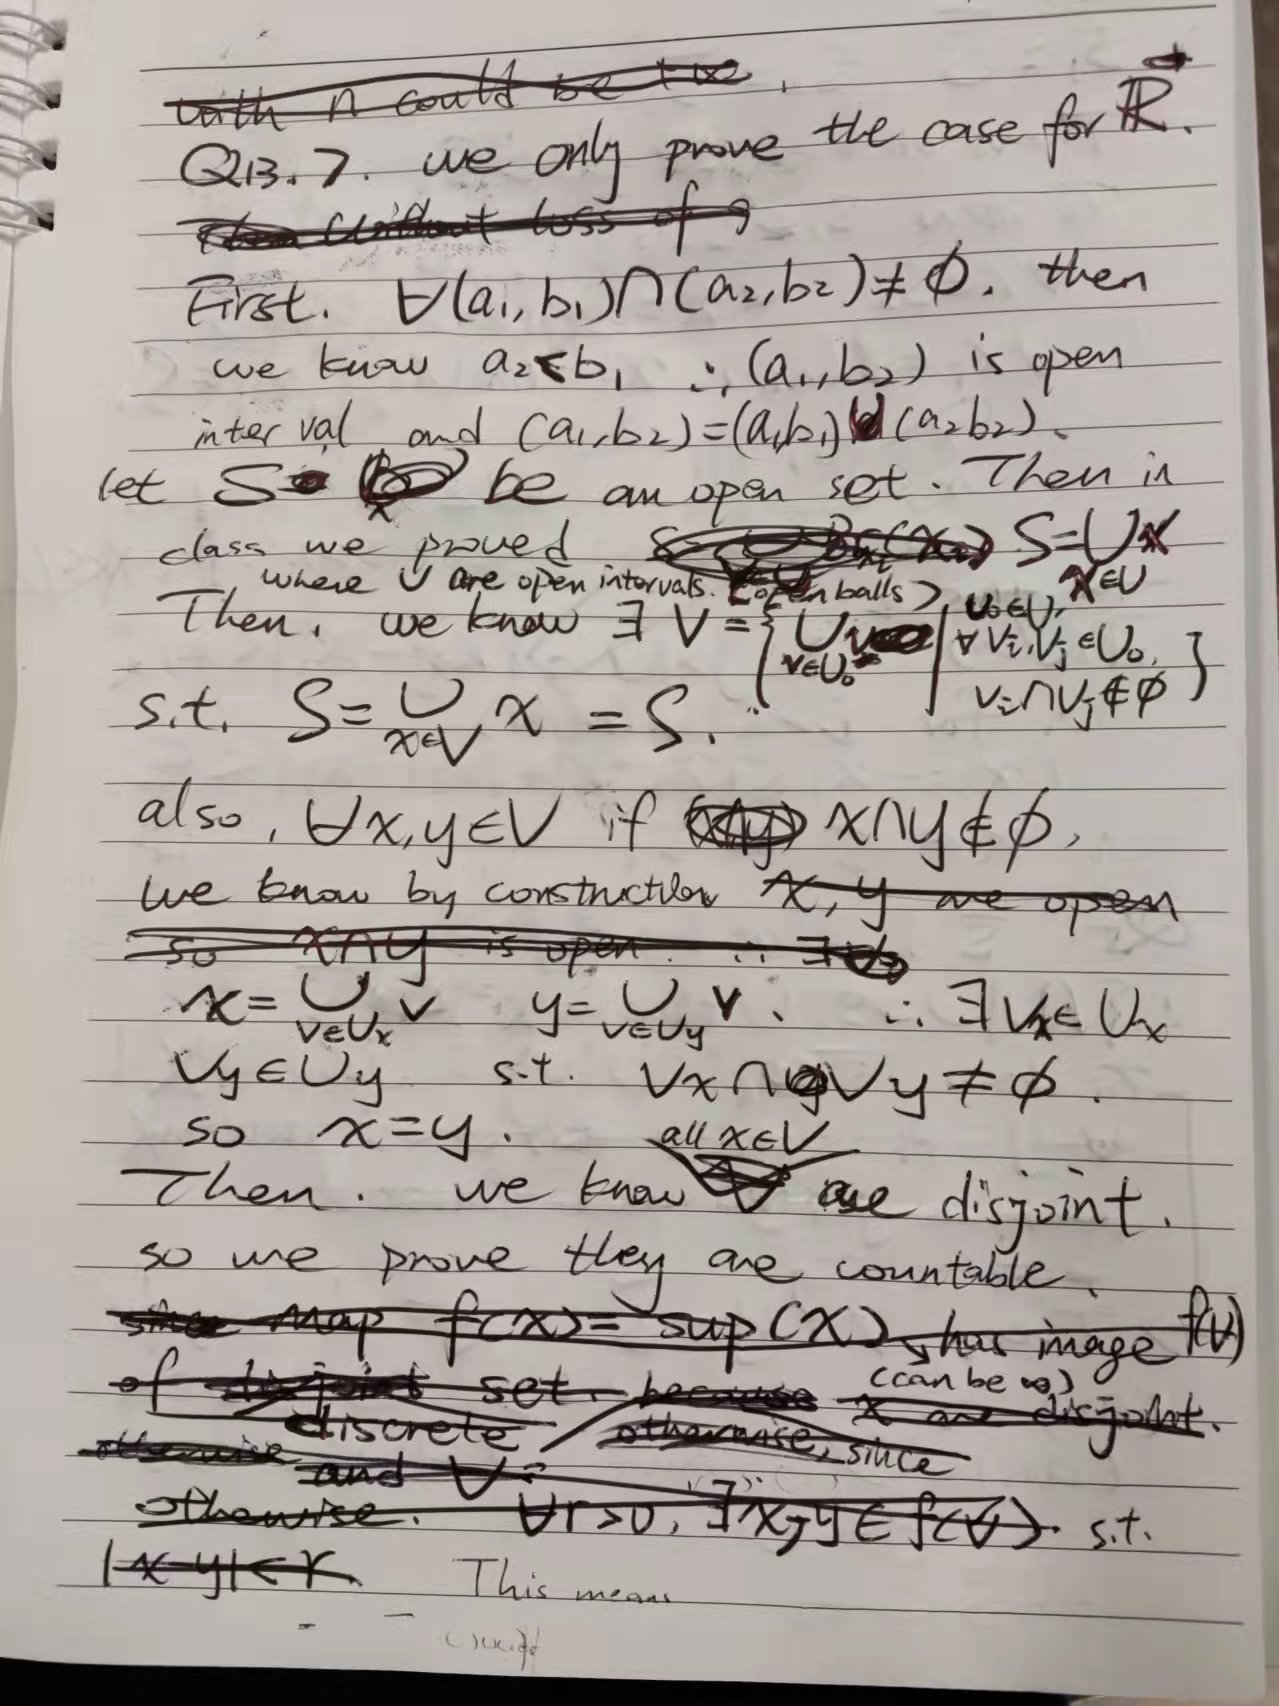 with n could be +∞.
Q13.7. we only prove the case for ℝ.
Without loss of g
First. ∀(a₁,b₁)∩(a₂,b₂)≠∅. then
we know a₂<b₁ ∴ (a₁,b₂) is open
interval and (a₁,b₂)=(a₁b₁)∪(a₂b₂).
let S be an open set. Then in
class we proved S=∪x
x∈U
where U are open intervals. (open balls)
Then. we know ∃ V = { ∪ v∈U₀ | U₀∈U, ∀ Vᵢ,Vⱼ ∈U₀, Vᵢ∩Vⱼ ∉ϕ }
s.t. S= ∪ x∈V x = S.
also, ∀x,y∈V if x∩y∉ϕ,
we know by construction x, y are open
so x∩y is open ∴ ∃
x= ∪ v∈Uₓ v y= ∪ v∈Uy v. ∴ ∃ Vₓ∈ Uₓ
Vy∈Uy s.t. Vx ∩ Vy ≠ ϕ.
so x=y.
all x∈V
Then. we know are disjoint.
so we prove they are countable.
since map f(x)= sup(X) has image f(V)
(can be ∞)
of set. because x are disjoint.
discrete otherwise, since
otherwise and V
otherwise. ∀r>0, ∃x,y∈f(V). s.t.
|x-y|<r. This means